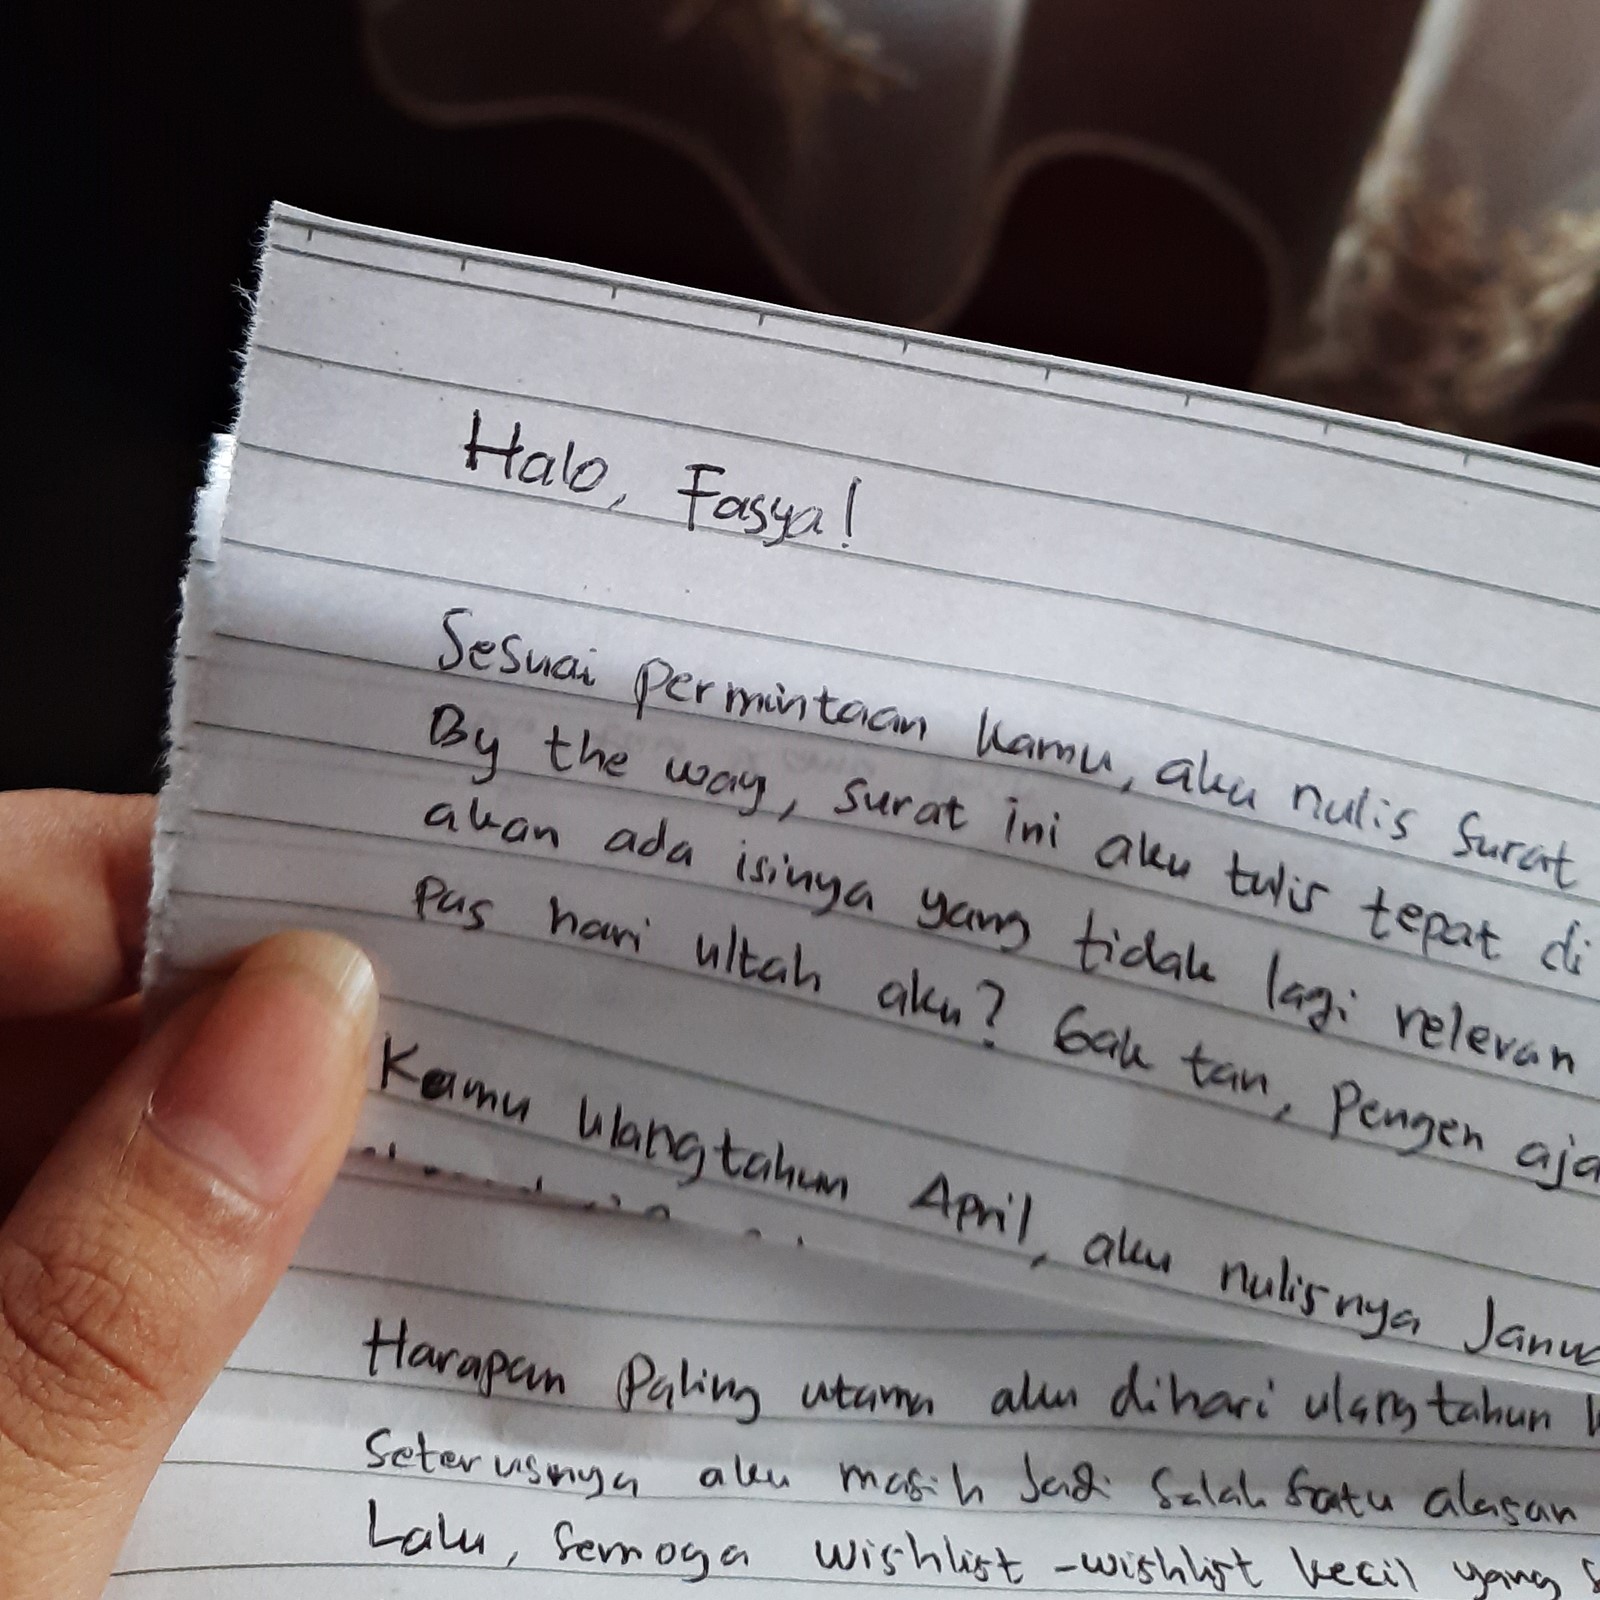 Halo, Fasya!
Sesuai permintaan kamu, aku nulis surat
By the way, surat ini aku tulis tepat di
akan ada isinya yang tidak lagi relevan
pas hari ultah aku? Gak tau, pengen aja
Kamu ulangtahun April, aku nulisnya Janu
Harapan paling utama aku dihari ulangtahun
seterusnya aku masih jadi salah satu alasan
Lalu, semoga wishlist-wishlist kecil yang